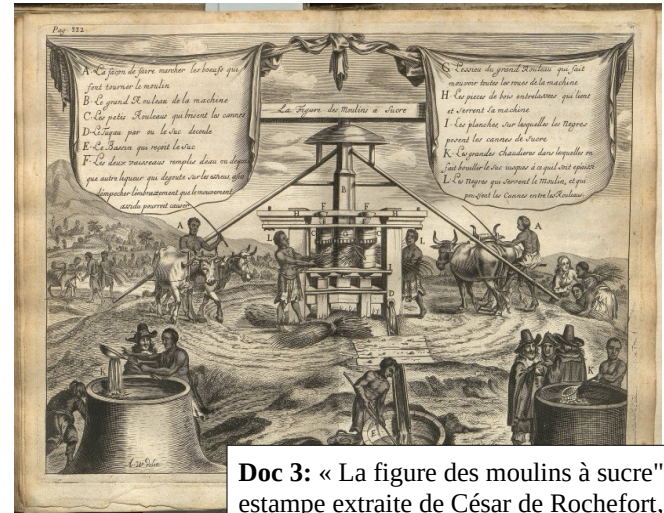 Pag. 222
A. La façon de faire marcher les boeufs qui
font tourner le moulin
B. Le grand Rouleau de la machine
C. Les petis Rouleaus qui brisent les cannes
D. Le Tuyau par ou le Suc decoule
E. Le Bassin qui reçoit le Suc
F. Les deux vaisseaus remplis d'eau ou de
que autre liqueur qui degoute sur les essieus, afin
d'empecher l'embrazement que le mouvement
assidu pourroit causer
La Figure des Moulins à Sucre
G. L'essieu du grand Rouleau qui fait
mouvoir toutes les roues de la machine
H. Les pieces de bois entrelassees qui lient
et serrent la machine
I. Les planches, sur lesquelles les Negres
posent les cannes de Sucre
K. Les grandes chaudieres dans lesquelles on
fait bouillir le Suc jusques à ce qu'il soit epaissi
L. Les Negres qui servent le Moulin, et qui
les Cannes entre les Rouleaus.
A
B
F
F
H
H
A
L
C
L
I
D
K
K
E
Doc 3: « La figure des moulins à sucre"
estampe extraite de César de Rochefort,